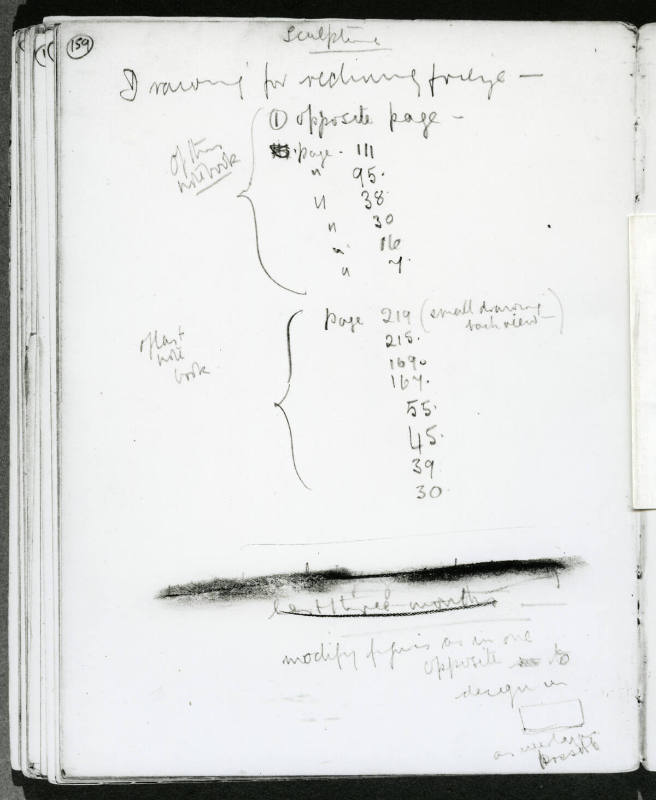 159
Sculpture
Drawing for reclining frieze —
① opposite page —
Of this
notebook
page - 111
" 95.
" 38
" 30
" 16
" 7.
of last
note
book
page 219 (small drawing
back view —)
215.
169.
167.
55.
45.
39
30.
last three months
modify figures as in one
opposite to
design in